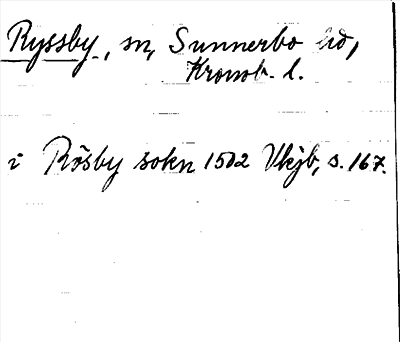 Ryssby, sn, Sunnerbo hd,
Kronob. l.
i Rösby sokn 1502 Vkjb, s. 167.